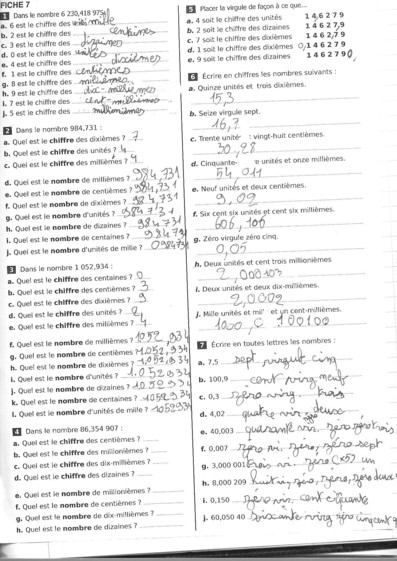 FICHE 7
1 Dans le nombre 6 230,418 975
a. 6 est le chiffre des mille
b. 2 est le chiffre des centaines
c. 3 est le chiffre des dizaines
d. 0 est le chiffre des unités
e. 4 est le chiffre des dixièmes
f. 1 est le chiffre des centièmes
g. 8 est le chiffre des millièmes
h. 9 est le chiffre des dix-millièmes
i. 7 est le chiffre des cent-millièmes
j. 5 est le chiffre des millionièmes
2 Dans le nombre 984,731 :
a. Quel est le chiffre des dixièmes ? 7
b. Quel est le chiffre des unités ? 4
c. Quel est le chiffre des millièmes ?
d. Quel est le nombre de millièmes ? 984,731
e. Quel est le nombre de centièmes ? 984,731
f. Quel est le nombre de dixièmes ? 984,731
g. Quel est le nombre d'unités ? 984731
h. Quel est le nombre de dizaines ? 984731
i. Quel est le nombre de centaines ? 984731
j. Quel est le nombre d'unités de mille ? 0984731
3 Dans le nombre 1 052,934 :
a. Quel est le chiffre des centaines ? 0
b. Quel est le chiffre des centièmes ? 3
c. Quel est le chiffre des dixièmes ? 9
d. Quel est le chiffre des unités ? 2
e. Quel est le chiffre des millièmes ? 4
f. Quel est le nombre de millièmes ? 1052,934
g. Quel est le nombre de centièmes ? 1052,934
h. Quel est le nombre de dixièmes ? 1,052,934
i. Quel est le nombre d'unités ? 1.052934
j. Quel est le nombre de dizaines ? 1052934
k. Quel est le nombre de centaines ? 1052934
l. Quel est le nombre d'unités de mille ? 1052934
4 Dans le nombre 86,354 907 :
a. Quel est le chiffre des centièmes ?
b. Quel est le chiffre des millionièmes ?
c. Quel est le chiffre des dix-millièmes ?
d. Quel est le chiffre des dizaines ?
e. Quel est le nombre de millionièmes ?
f. Quel est le nombre de centièmes ?
g. Quel est le nombre de dix-millièmes ?
h. Quel est le nombre de dizaines ?
5 Placer la virgule de façon à ce que...
a. 4 soit le chiffre des unités 14,6279
b. 2 soit le chiffre des dizaines 14627,9
c. 7 soit le chiffre des dixièmes 1462,79
d. 1 soit le chiffre des dixièmes 0,146279
e. 9 soit le chiffre des dizaines 1462790
6 Écrire en chiffres les nombres suivants :
a. Quinze unités et trois dixièmes.
15,3
b. Seize virgule sept.
16,7
c. Trente unité : vingt-huit centièmes.
30,28
d. Cinquante- e unités et onze millièmes.
54,011
e. Neuf unités et deux centièmes.
9,02
f. Six cent six unités et cent six millièmes.
606,106
g. Zéro virgule zéro cinq.
0,05
h. Deux unités et cent trois millionièmes
2,000103
i. Deux unités et deux dix-millièmes.
2,0002
j. Mille unités et mil et un cent-millièmes.
1000,0 100100
7 Écrire en toutes lettres les nombres :
a. 7,5 sept virgule cinq
b. 100,9 cent virg neuf
c. 0,3 zero virg. trois
d. 4,02 quatre vir zéro deux
e. 40,003 quarante vir. zero zero trois
f. 0,007 zero vi. zéro, zéro sept
g. 3,000 001 trois vi. zero (x5) un
h. 8,000 209 huit virg zero, zero, zero deux
i. 0,150 zero vir. cent cinquante
j. 60,050 40 soixante virg zéro cinq cent q